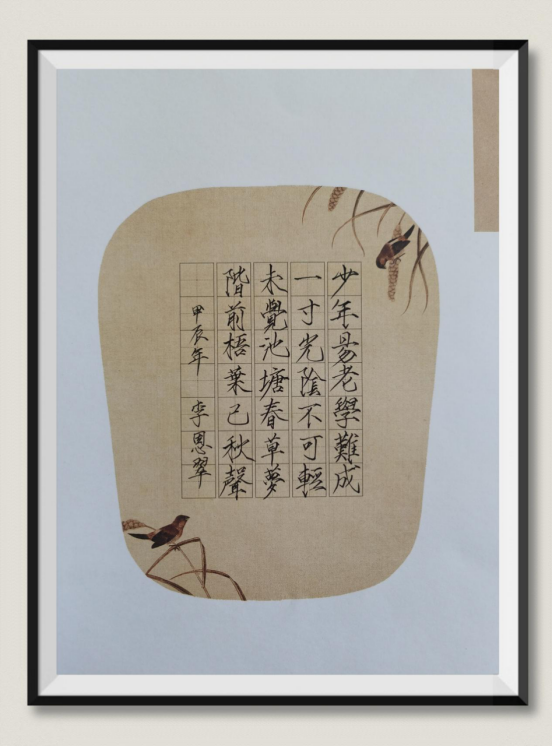 少年易老學難成
一寸光陰不可輕
未覺池塘春草夢
階前梧葉已秋聲
甲辰年 李恩翠